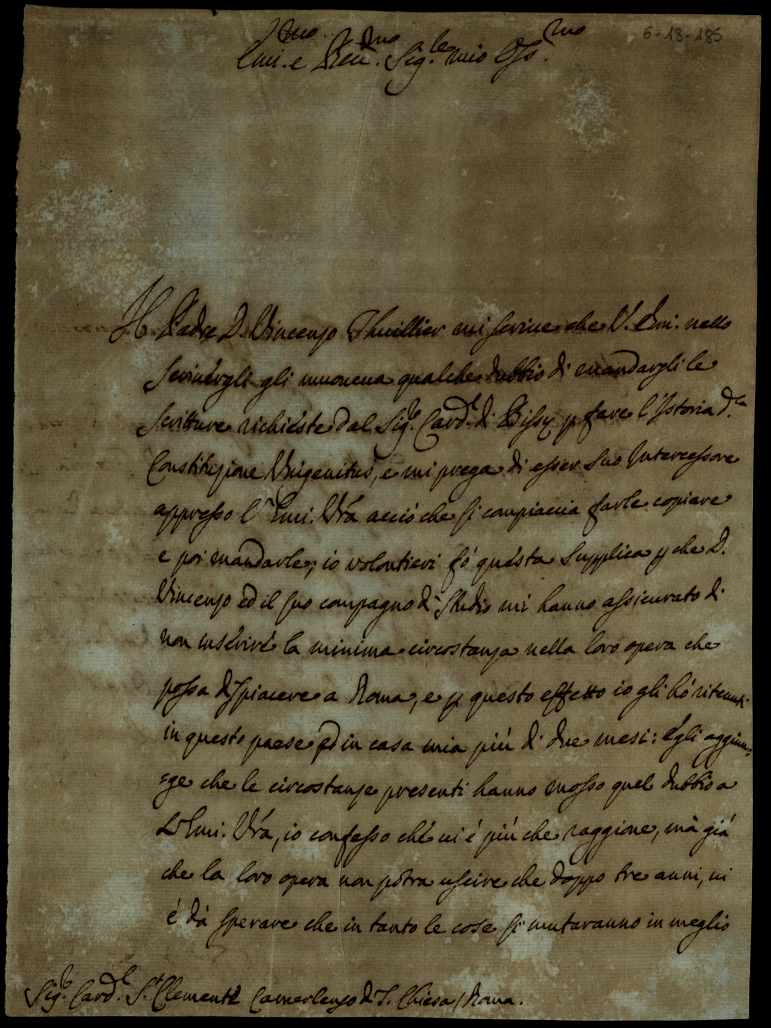 6-13-185
Emi.mo e Reu.mo Sig.le mio Oss.mo
Il Padre D. Vincenzo Thuillier mi scriue che V. Emi. nello
scriuergli gli muoueua qualche dubbio di mandargli le
scritture richieste dal Sig.r Card.l di Bissy p fare l'Istoria d.la
Constituzione Unigenitus, e mi prega di esser suo Intercessore
appresso l'Emi. Vrã acciò che si compiaccia farle copiare
e poi mandarle; io volontieri fò questa supplica p che D.
Vincenzo ed il suo compagno di Studio mi hanno assicurato di
non inserire la minima circostanza nella loro opera che
possa dispiacere a Roma, e p questo effetto io gli hò ritenuti
in questo paese ed in casa mia più di due mesi: egli aggiun=
=ge che le circostanze presenti hanno mosso quel dubbio a
L'Emi. Vrã, io confesso che ui è più che raggione, mà già
che la loro opera non potra uscire che doppo tre anni, ui
è dà sperare che in tanto le cose si mutaranno in meglio
Sig.r Card.l S.t Clemente Camerlengo di S. Chiesa / Roma.